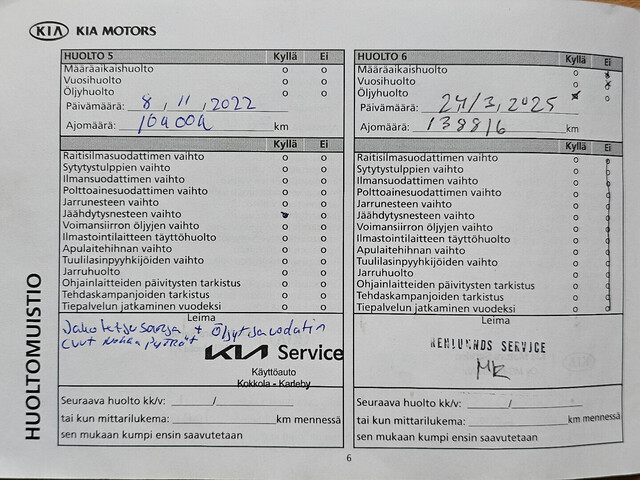 KIA KIA MOTORS
HUOLTO 5 Kyllä Ei
Määräaikaishuolto o o
Vuosihuolto o o
Öljyhuolto o o
Päivämäärä: 8 , 11 , 2022
Ajomäärä: km
Kyllä Ei
Raitisilmasuodattimen vaihto o o
Sytytystulppien vaihto o o
Ilmansuodattimen vaihto o o
Polttoainesuodattimen vaihto o o
Jarrunesteen vaihto o o
Jäähdytysnesteen vaihto o
Voimansiirron öljyjen vaihto o o
Ilmastointilaitteen täyttöhuolto o o
Apulaitehihnan vaihto o o
Tuulilasinpyyhkijöiden vaihto o o
Jarruhuolto o o
Ohjainlaitteiden päivitysten tarkistus o o
Tehdaskampanjoiden tarkistus o o
Tiepalvelun jatkaminen vuodeksi o o
Leima
+
KIA Service
Käyttöauto
Kokkola - Karleby
Seuraava huolto kk/v: /
tai kun mittarilukema: km mennessä
sen mukaan kumpi ensin saavutetaan
HUOLTO 6 Kyllä Ei
Määräaikaishuolto o
Vuosihuolto o
Öljyhuolto o
Päivämäärä: 24/3, 2025
Ajomäärä: 138816 km
Kyllä Ei
Raitisilmasuodattimen vaihto o o
Sytytystulppien vaihto o o
Ilmansuodattimen vaihto o o
Polttoainesuodattimen vaihto o o
Jarrunesteen vaihto o o
Jäähdytysnesteen vaihto o o
Voimansiirron öljyjen vaihto o o
Ilmastointilaitteen täyttöhuolto o o
Apulaitehihnan vaihto o o
Tuulilasinpyyhkijöiden vaihto o o
Jarruhuolto o o
Ohjainlaitteiden päivitysten tarkistus o o
Tehdaskampanjoiden tarkistus o o
Tiepalvelun jatkaminen vuodeksi o o
Leima
SERVICE
Seuraava huolto kk/v: /
tai kun mittarilukema: km mennessä
sen mukaan kumpi ensin saavutetaan
HUOLTOMUISTIO
6